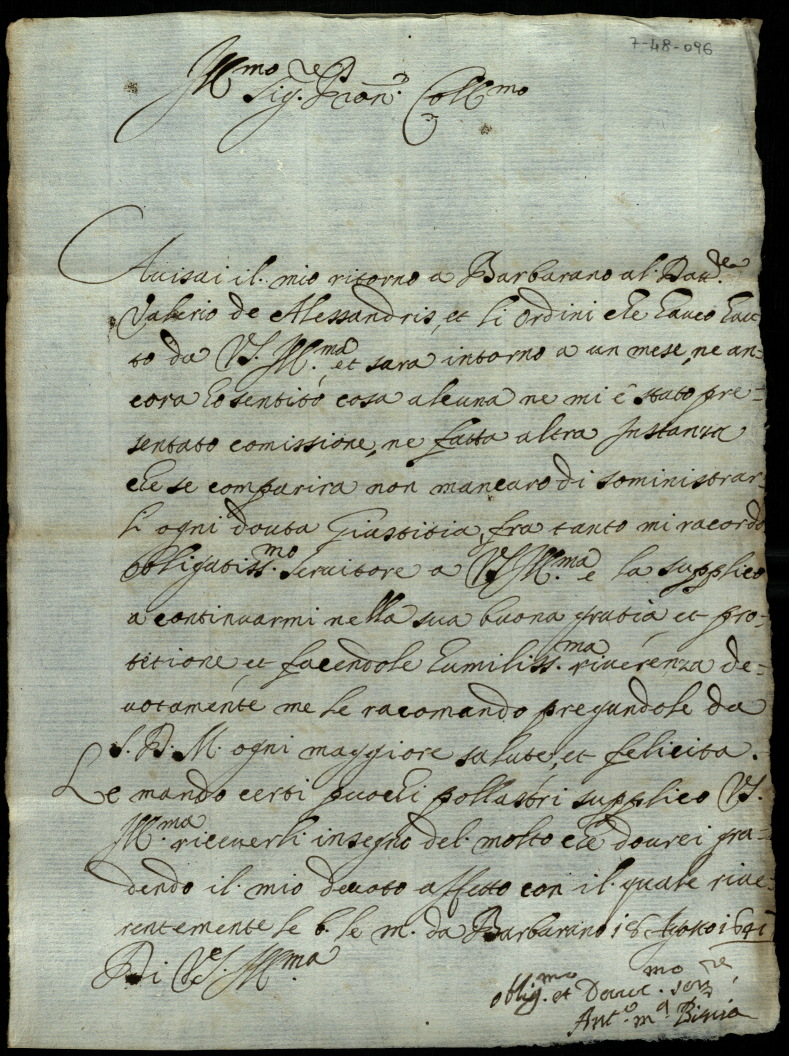 7-48-096
Ill.mo Sig.re Pron. Coll.mo
Auisai il mio ritorno a Barbarano al
Valerio de Alessandris, et li ordini che haueo hau
to da VS. Ill.ma et sara intorno a un mese, ne an-
cora ho sentito cosa alcuna ne mi è stato pre-
sentato comissione, ne fatta altra Instanza
che se comparira non mancaro di sominisrar-
li ogni douta Giustitia, fra tanto mi racordo
obligatiss.mo seruitore a VS Ill.ma e la supplico
a continuarmi nella sua buona gratia et pro-
titione et facendole humiliss.ma riuerenza de-
uotamente me le racomando pregandole da
S. D. M. ogni maggiore salute, et felicita.
Le mando certi puochi pollastri supplico VS.
Ill.ma riceuerli insegno del molto che dourei gra-
dendo il mio deuoto affetto con il quale riue-
rentemente le b. le m. da Barbarano 18 Agosto 1641
Di VS. Ill.ma
oblig.mo et Deuot.mo ser.re
Ant.o m.a